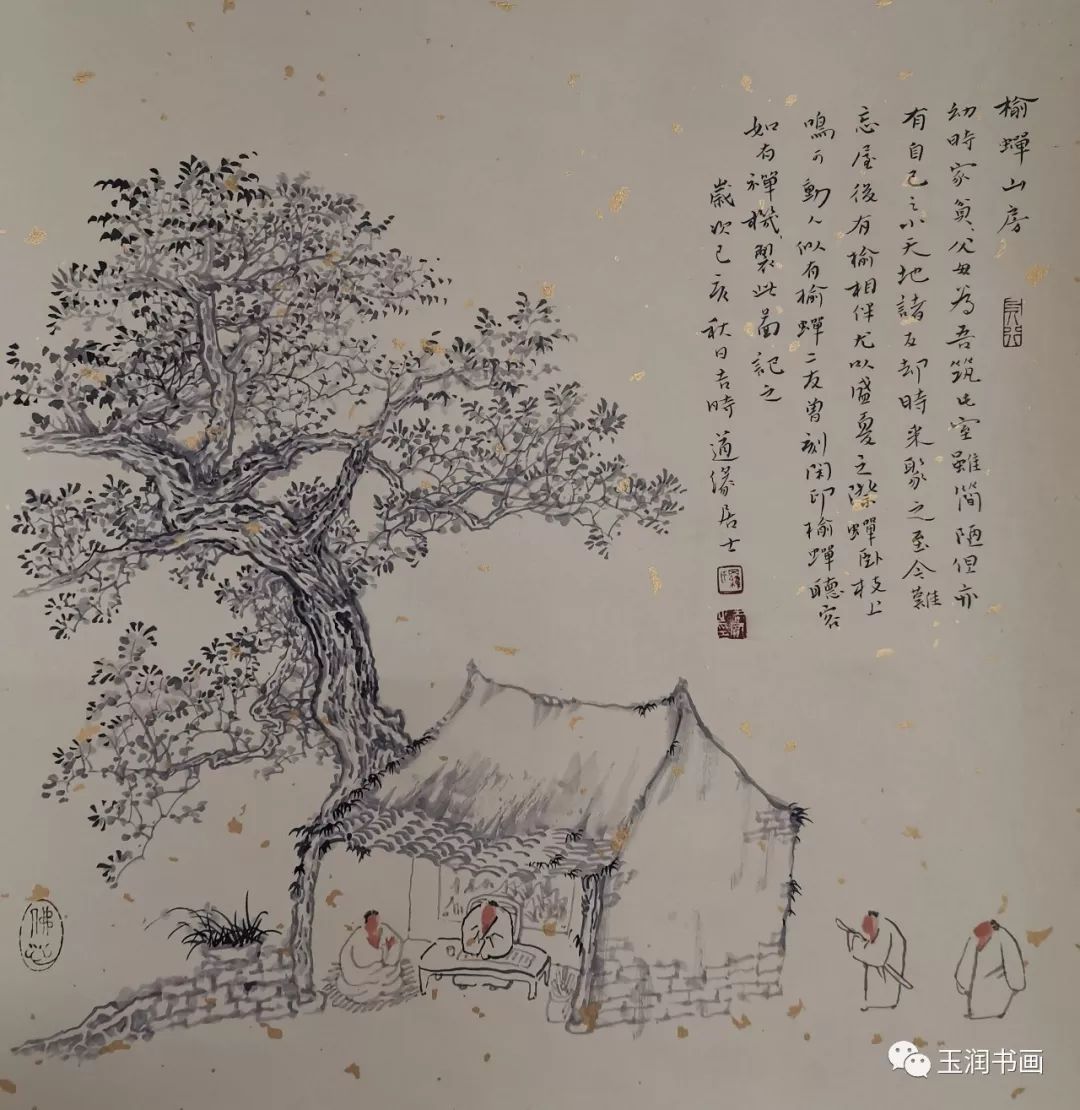 榆蟬山房
幼時家貧父母為吾筑此室雖簡陋但亦
有自己之小天地諸友却時來聚之至今難
忘屋後有榆相伴尤以盛夏之際蟬卧枝上
鳴可動人似有榆蟬二友曾刻閑印榆蟬聽容
如有禪機製此圖記之
歲次己亥秋日吉時 道緣居士
佛心
玉润书画